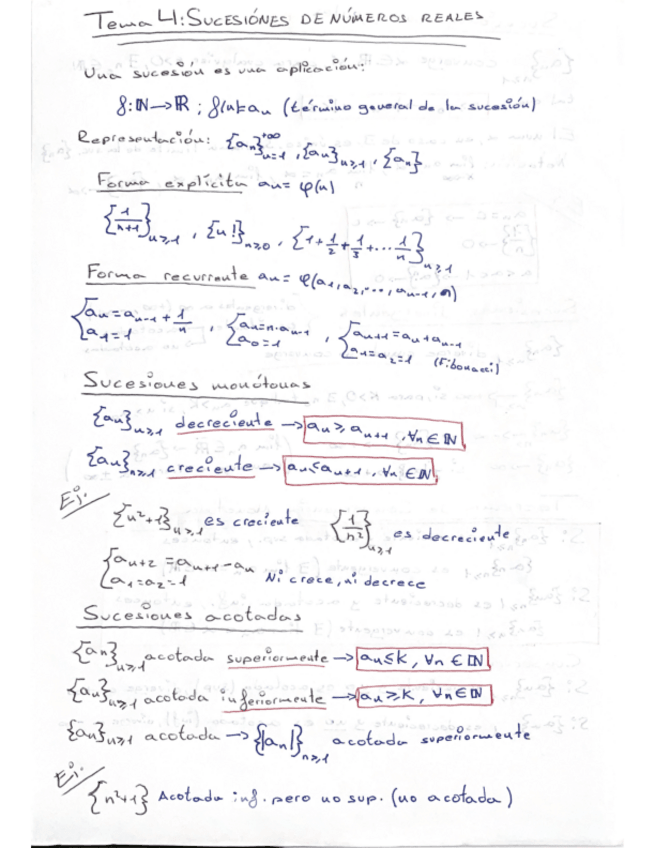 Tema 4: SUCESIÓNES DE NÚMEROS REALES
Una sucesión es una aplicación:
f: ℕ → ℝ ; f(n)=aₙ (término general de la sucesión)
Representación: {aₙ}ₙ₌₁⁺∞, {aₙ}ₙ≥₁, {aₙ}
Forma explícita aₙ = φ(n)
{1/(n+1)}ₙ≥₁ , {n!}ₙ≥₀ , {1+1/2+1/3+...1/n}ₙ≥₁
Forma recurrente aₙ = φ(a₁,a₂,...,aₙ₋₁,n)
{aₙ=aₙ₋₁+1/n , {aₙ=n·aₙ₋₁ , {aₙ₊₁=aₙ+aₙ₋₁
a₁=1 a₀=1 a₁=a₂=1 (Fibonacci)
Sucesiones monótonas
{aₙ}ₙ≥₁ decreciente → aₙ ≥ aₙ₊₁, ∀n ∈ ℕ
{aₙ}ₙ≥₁ creciente → aₙ ≤ aₙ₊₁, ∀n ∈ ℕ
Ej:
{n²+1}ₙ≥₁ es creciente {1/n²}ₙ≥₁ es decreciente
{aₙ₊₂ = aₙ₊₁ - aₙ
a₁=a₂=1 Ni crece, ni decrece
Sucesiones acotadas
{aₙ}ₙ≥₁ acotada superiormente → aₙ ≤ K, ∀n ∈ ℕ
{aₙ}ₙ≥₁ acotada inferiormente → aₙ ≥ K, ∀n ∈ ℕ
{aₙ}ₙ≥₁ acotada → {|aₙ|}ₙ≥₁ acotada superiormente
Ej:
{n²+1} Acotada inf. pero no sup. (no acotada)